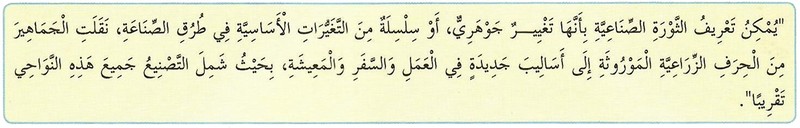 "يُمْكِنُ تَعْرِيفُ الثَّوْرَةِ الصِّنَاعِيَّةِ بِأَنَّهَا تَغْيِيـــرٌ جَوْهَرِيٌّ، أَوْ سِلْسِلَةٌ مِنَ التَّغَيُّرَاتِ الْأَسَاسِيَّةِ فِي طُرُقِ الصِّنَاعَةِ، نَقَلَتِ الْجَمَاهِيرَ
مِنَ الْحِرَفِ الزِّرَاعِيَّةِ الْمَوْرُوثَةِ إِلَى أَسَالِيبَ جَدِيدَةٍ فِي الْعَمَلِ وَالسَّفَرِ وَالْمَعِيشَةِ، بِحَيْثُ شَمِلَ التَّصْنِيعُ جَمِيعَ هَذِهِ النَّوَاحِي
تَقْرِيبًا".